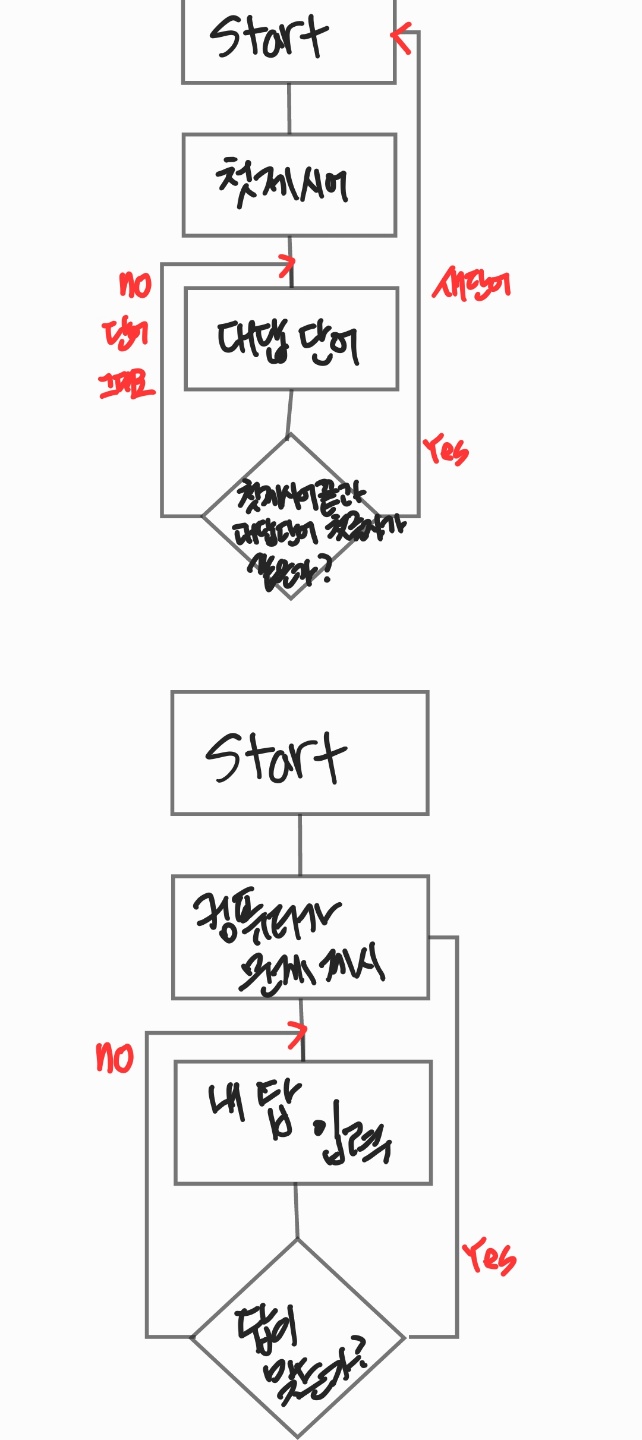 Start
첫제시어
no
단어
그대로
새단어
대답 단어
Yes
첫제시어끝단
대답단어 첫글자가
같은가?
Start
컴퓨터가
문제 제시
no
내 답
입력
Yes
답이
맞는가?